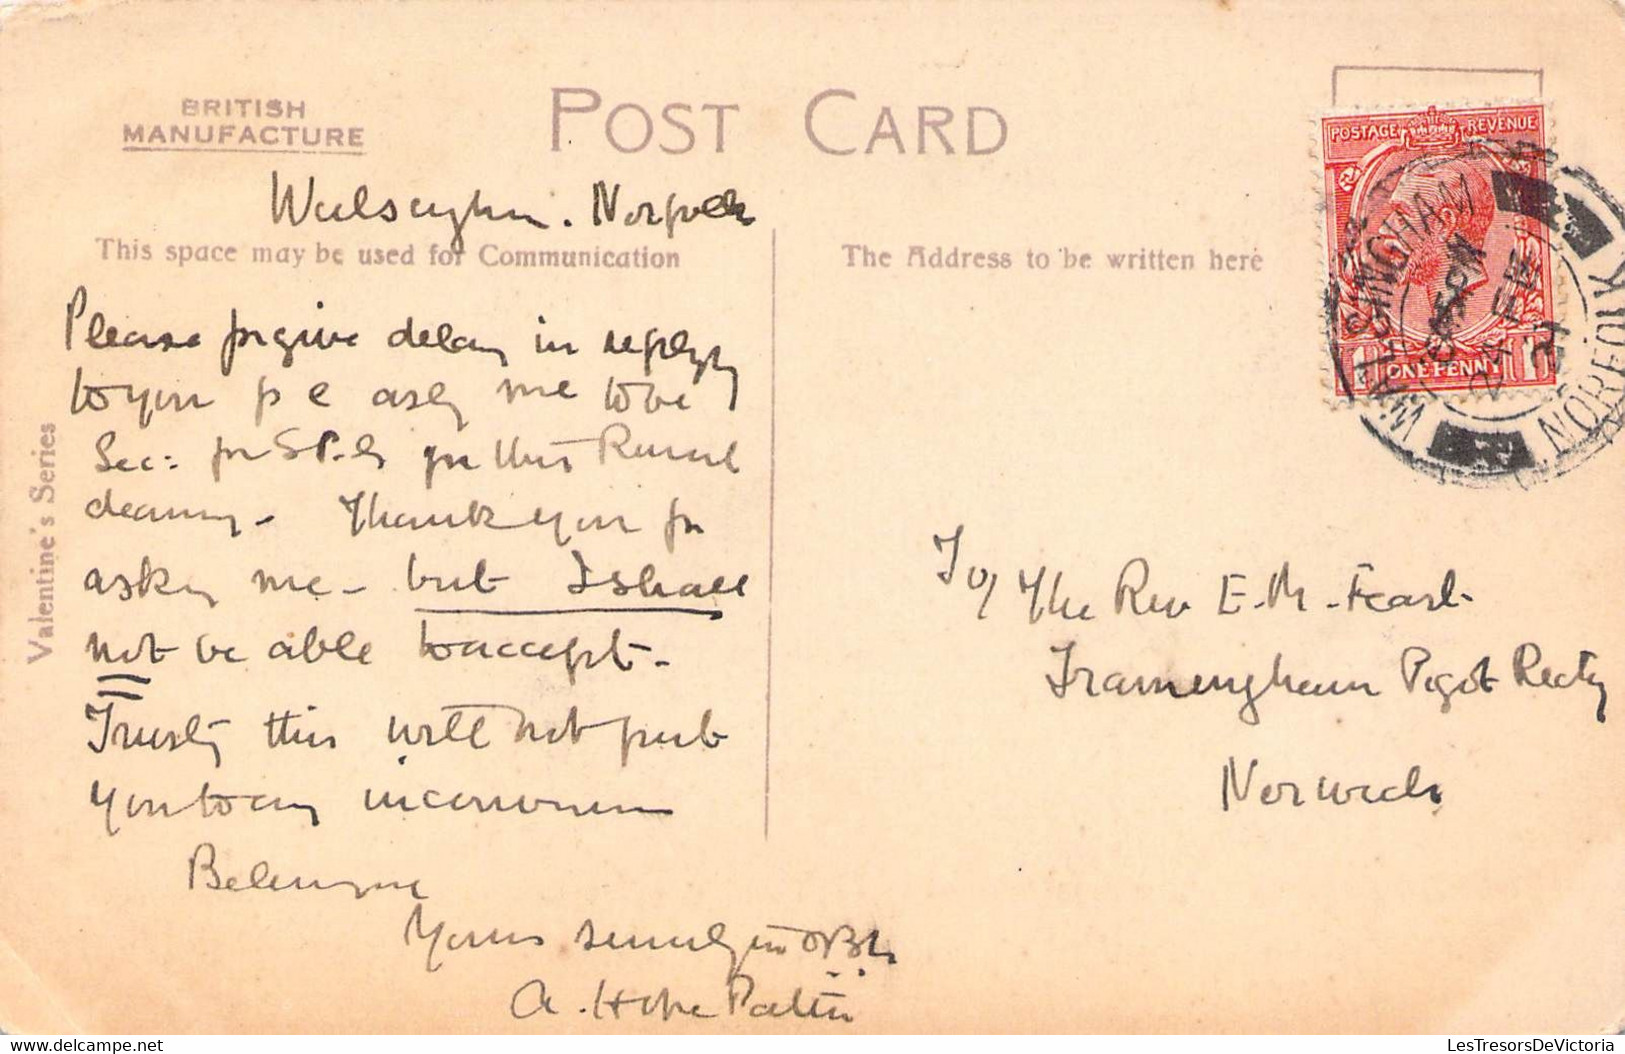 BRITISH
MANUFACTURE
POST CARD
Walsingham. Norfolk
This space may be used for Communication
The Address to be written here
Valentine's Series
Please forgive delay in replying
to your p c asking me to be
Sec: for S.P.G. for this Rural
deanery - Thank you for
asking me - but I shall
not be able to accept -
Trusting this will not put
you to any inconvenience
Believe me
Yours sincerely
A. Hope Patten
POSTAGE REVENUE
1 ONE PENNY 1
WALSINGHAM
PM
24 FE
21
NORFOLK
To/ The Rev E. M. Feast
Framingham Pigot Recty
Norwich
LesTresorsDeVictoria
delcampe.net